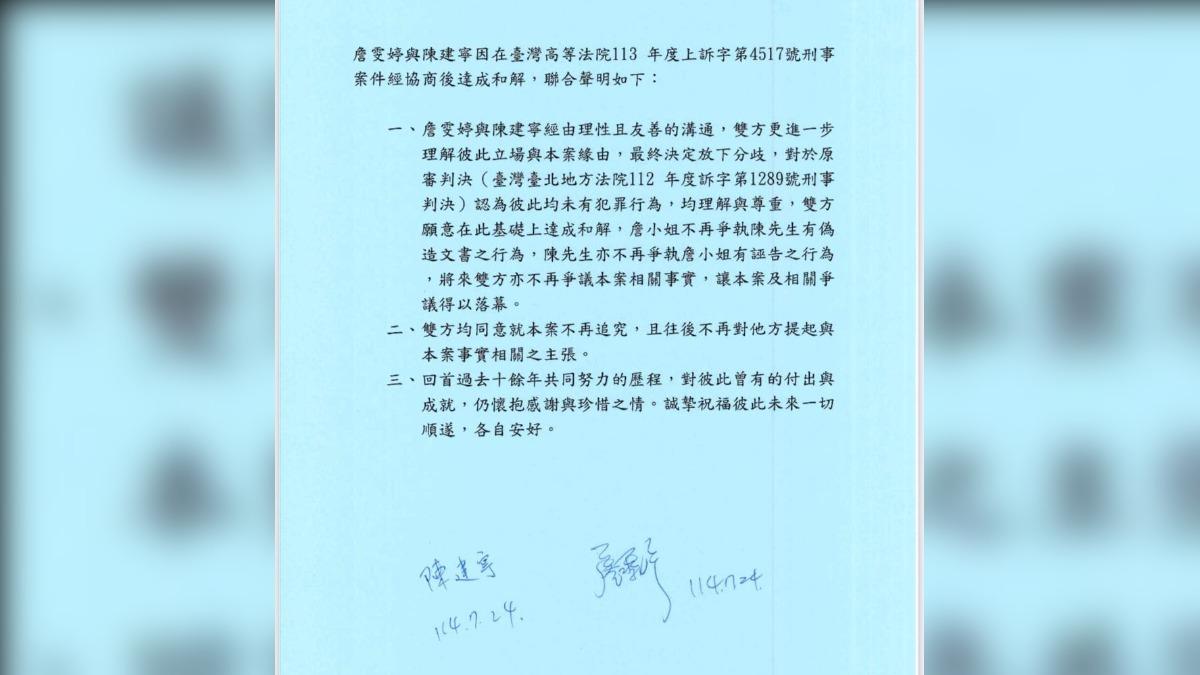 詹雯婷與陳建寧因在臺灣高等法院113 年度上訴字第4517號刑事
案件經協商後達成和解，聯合聲明如下：
一、詹雯婷與陳建寧經由理性且友善的溝通，雙方更進一步
理解彼此立場與本案緣由，最終決定放下分歧，對於原
審判決（臺灣臺北地方法院112 年度訴字第1289號刑事
判決）認為彼此均未有犯罪行為，均理解與尊重，雙方
願意在此基礎上達成和解，詹小姐不再爭執陳先生有偽
造文書之行為，陳先生亦不再爭執詹小姐有誣告之行為
，將來雙方亦不再爭議本案相關事實，讓本案及相關爭
議得以落幕。
二、雙方均同意就本案不再追究，且往後不再對他方提起與
本案事實相關之主張。
三、回首過去十餘年共同努力的歷程，對彼此曾有的付出與
成就，仍懷抱感謝與珍惜之情。誠摯祝福彼此未來一切
順遂，各自安好。
陳建寧 詹雯婷 114.7.24.
114.7.24.